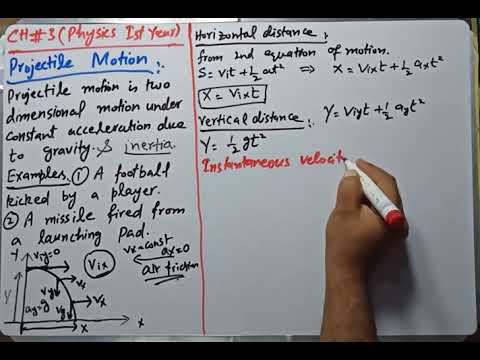 CH#3 (Physics Ist Year)
Projectile Motion :.
Projectile motion is two
dimensional motion under
constant acceleration due
to gravity. & inertia.
Examples. ① A football
kicked by a player.
② A missile fired from
a launching Pad.
Y Viy=0 Vix Vx=const ax=0
air friction
Y ay=g Vy Vx Vy Vx
X x
Horizontal distance :
from 2nd equation of motion.
S = Vit + 1/2 at² ⇒ X = Vixt + 1/2 axt²
X = Vixt
Vertical distance :. Y = Viyt + 1/2 ayt²
Y = 1/2 gt²
Instantaneous velocit